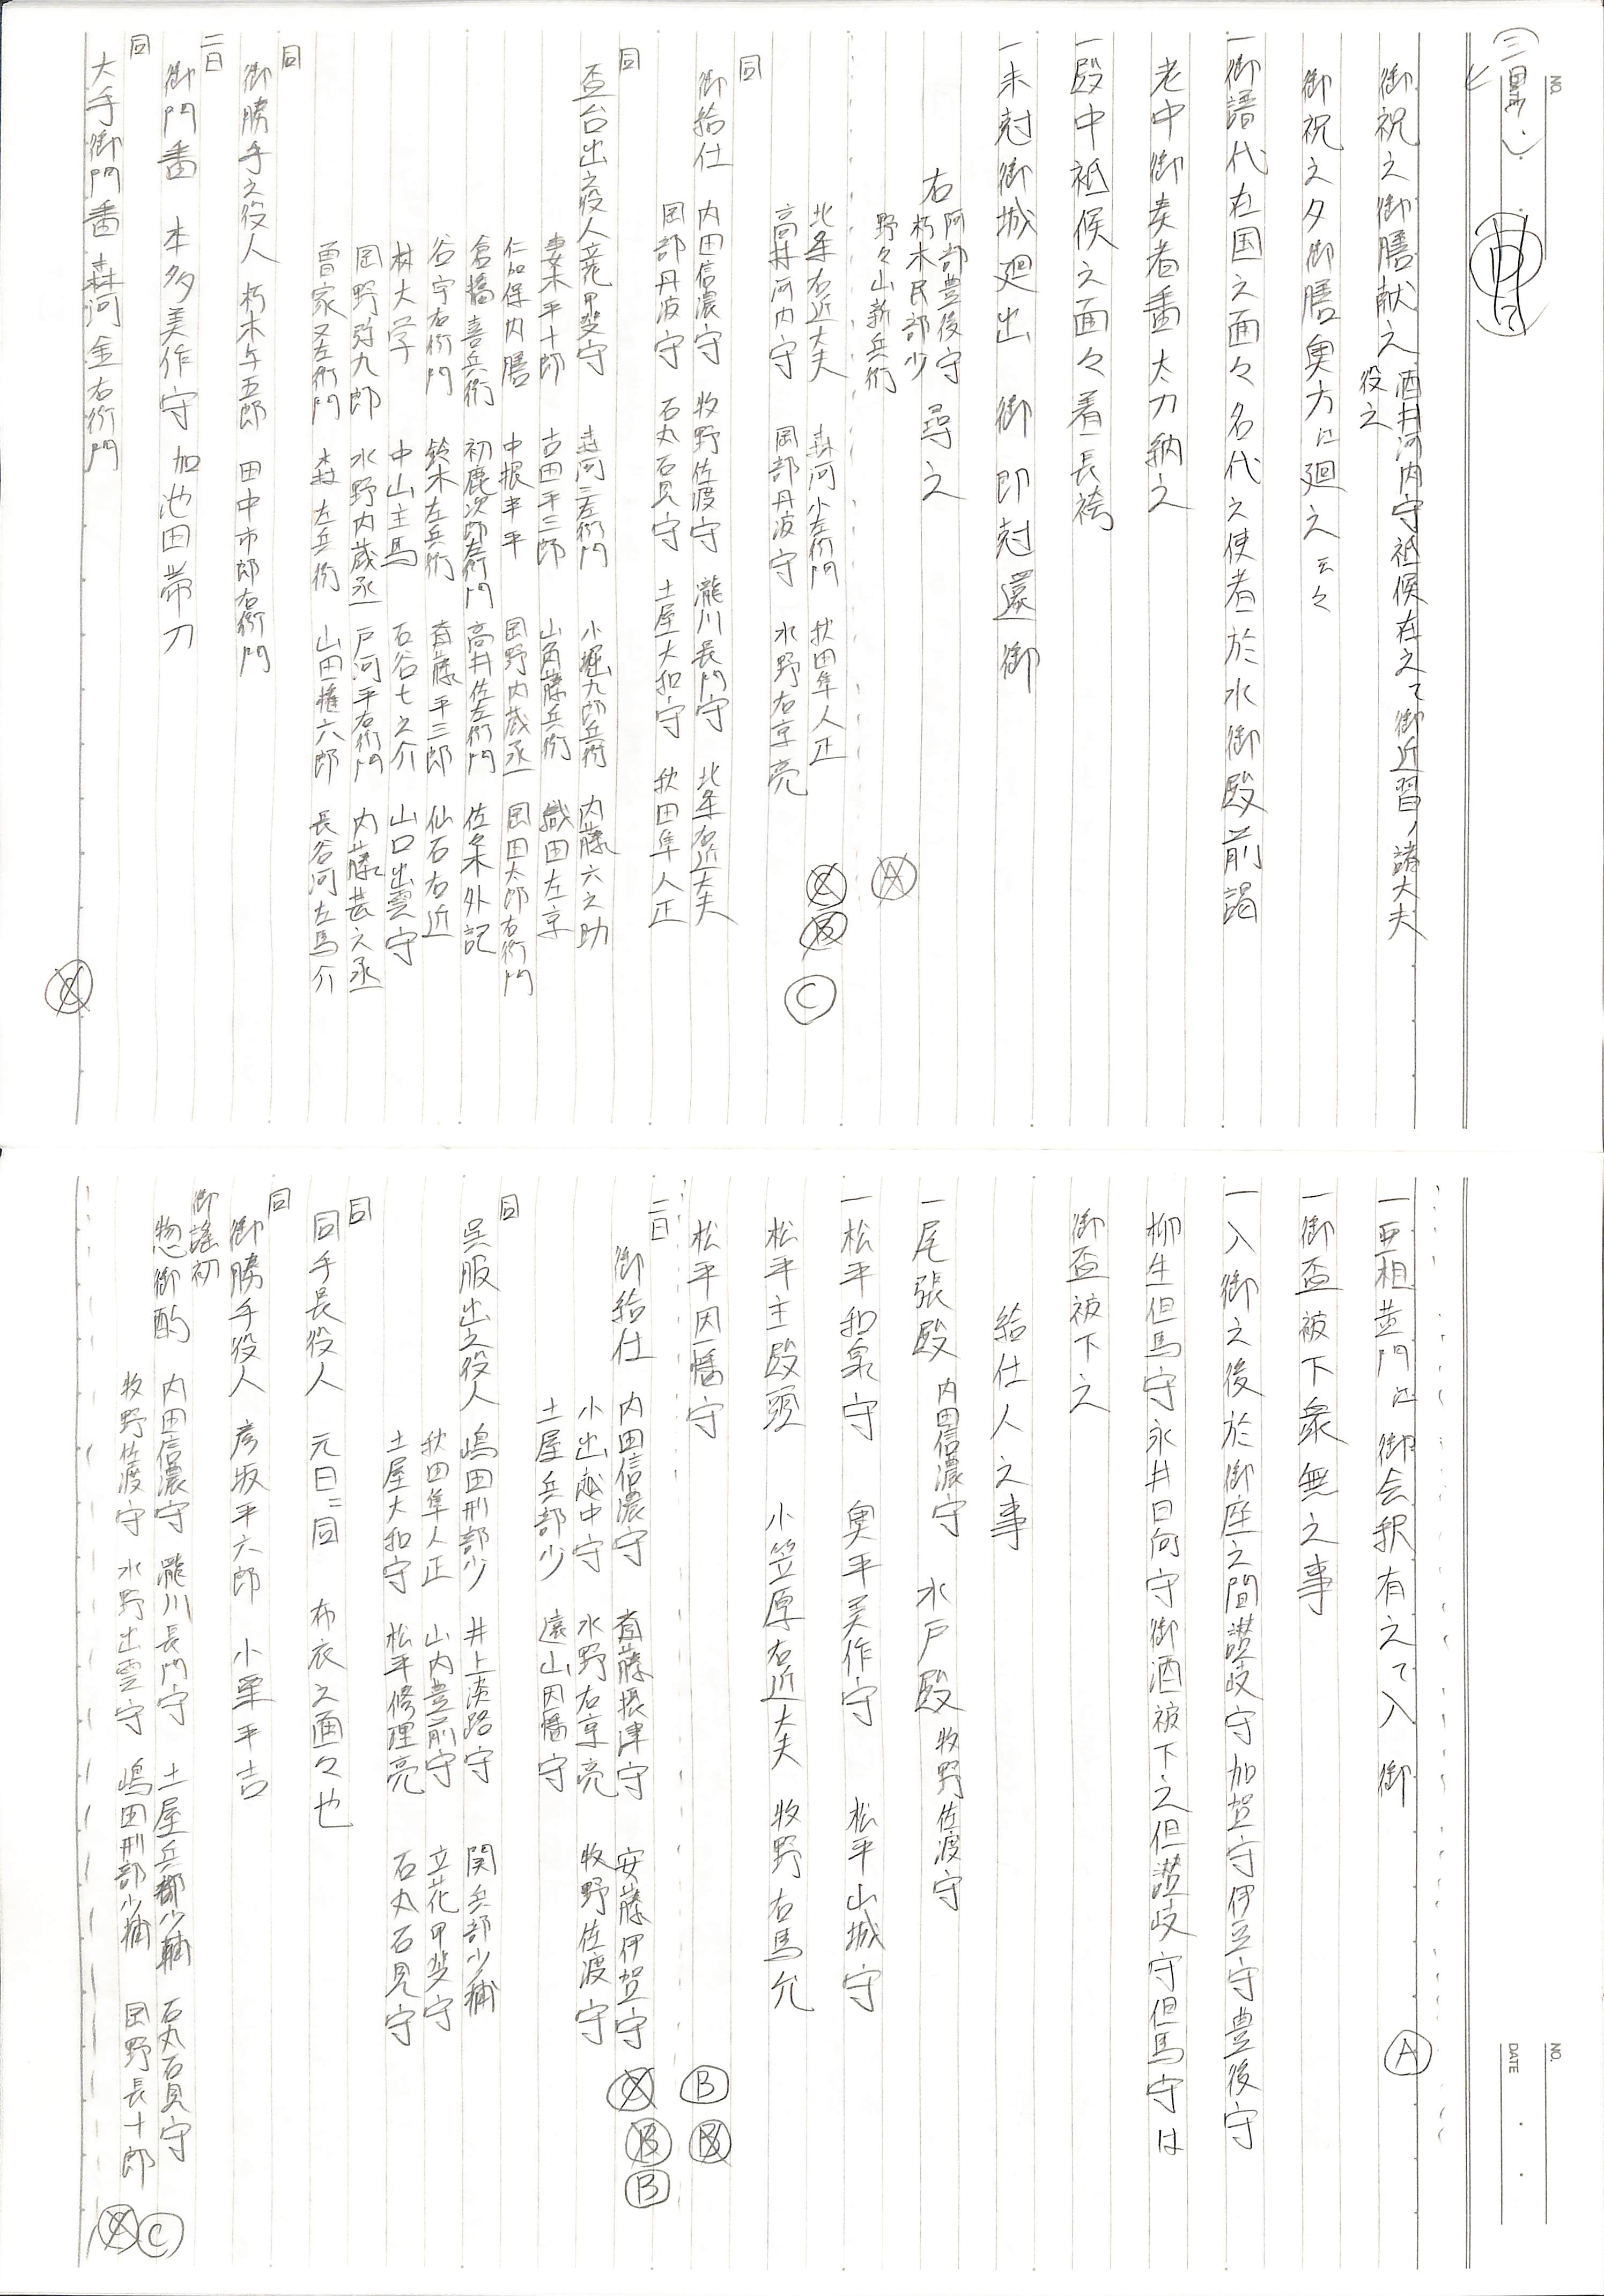 NO.
御祝之御膳献之役之酒井河内守祗候在之て御近習ノ諸大夫
御祝之夕御膳奥方江廻之云々
一御譜代在国之面々名代之使者於水御殿前謁
老中御奏者番太刀納之
一殿中祗候之面々着長袴
一未尅御城廻出 御 即尅還御
右 阿部豊後守
朽木民部少 尋之
野々山新兵衛
Ⓐ
北条右近大夫 森河小左衛門 秋田隼人正
高井河内守 岡部丹波守 水野右京亮
Ⓒ
同
御給仕 内田信濃守 牧野佐渡守 瀧川長門守 北条右近大夫
岡部丹波守 石丸石見守 土屋大和守 秋田隼人正
同
盃台出之役人 立花甲斐守 森河三左衛門 小堀九郎兵衛 内藤六之助
妻木平十郎 吉田平三郎 山角藤兵衛 織田左京
仁加保内膳 中根半平 岡野内蔵丞 岡田太郎右衛門
倉橋喜兵衛 初鹿次郎左衛門 高井佐左衛門 佐久木外記
谷宇右衛門 鈴木左兵衛 斉藤平三郎 仙石右近
林大学 中山主馬 石谷七之介 山口出雲守
岡野弥九郎 水野内蔵丞 戸河平右衛門 内藤甚之丞
曽家又左衛門 森左兵衛 山田権六郎 長谷河左馬介
同
御勝手之役人 朽木与五郎 田中市郎右衛門
二日
御門番 本多美作守 加池田帯刀
同
大手御門番 森河金右衛門
NO.
DATE
一亜相黄門江御会釈有之て入 御
Ⓐ
一御盃被下衆無之事
一入御之後於御座之間讃岐守加賀守伊豆守豊後守
柳生但馬守永井日向守御酒被下之但讃岐守但馬守は
御盃被下之
給仕人之事
一尾張殿 内田信濃守 水戸殿 牧野佐渡守
一松平和泉守 奥平美作守 松平山城守
松平主殿頭 小笠原右近大夫 牧野右馬允
松平因幡守
Ⓑ
二日
御給仕 内田信濃守 斉藤摂津守 安藤伊賀守
小出越中守 水野右京亮 牧野佐渡守
土屋兵部少 遠山因幡守
Ⓑ
同
呉服出之役人 嶋田刑部少 井上淡路守 関兵部少輔
秋田隼人正 山内豊前守 立花甲斐守
土屋大和守 松平修理亮 石丸石見守
同
同手長役人 元日ニ同 布衣之面々也
同
御勝手役人 彦坂平六郎 小栗平吉
御謡初
惣御酌 内田信濃守 瀧川長門守 土屋兵部少輔 石丸石見守
牧野佐渡守 水野出雲守 嶋田刑部少輔 岡野長十郎
Ⓒ